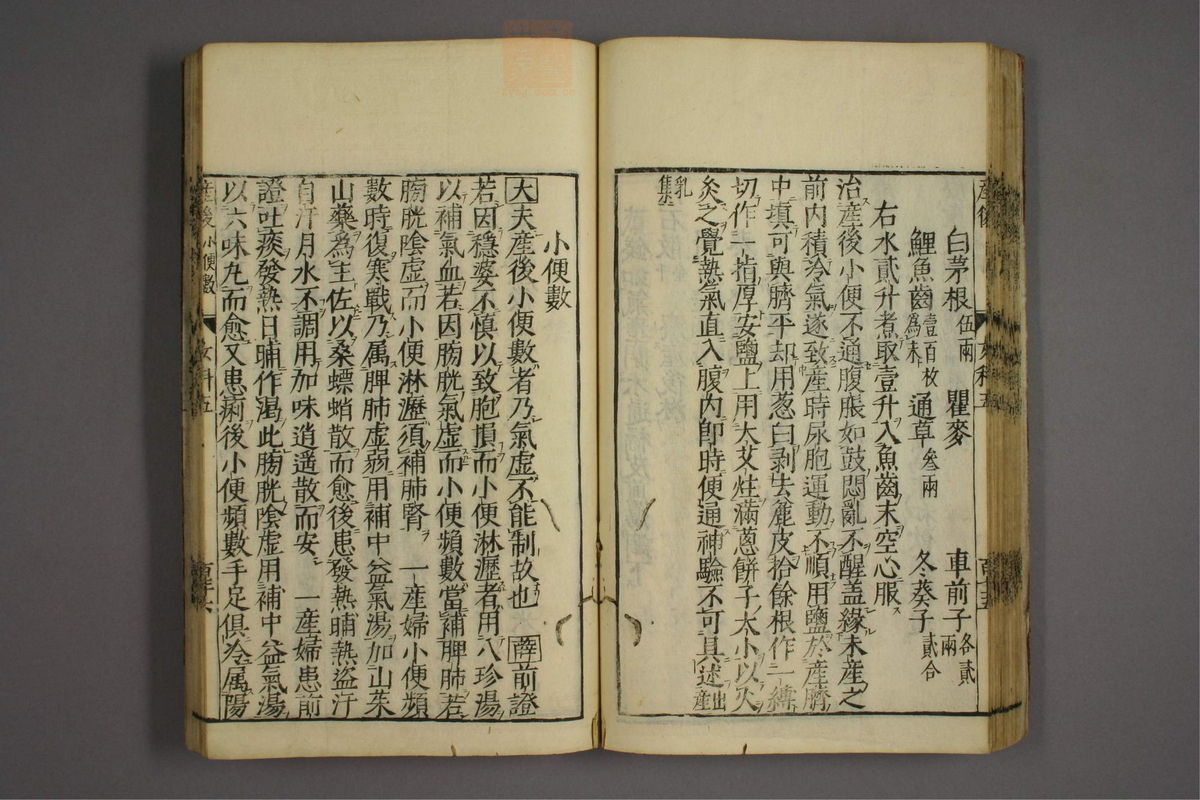 白茅根伍兩　瞿麥　車前子各貳兩
鯉魚齒壹百枚為末　通草叄兩　冬葵子貳合
右水貳升煮取壹升入魚齒末空心服
治產後小便不通腹脹如鼓悶亂不醒盖緣未產之
前內積冷氣遂致產時尿胞運動不順用鹽於產臍
中填可與臍平却用葱白剥去麄皮拾餘根作一縛
切作一指厚安鹽上用大艾炷滿葱餅子大小以火
灸之覺熱氣直入腹內即時便通神驗不可具述出產
乳集
小便數
大夫產後小便數者乃氣虛不能制故也　薛前證
若因穩婆不慎以致胞損而小便淋瀝者用八珍湯
以補氣血若因膀胱氣虛而小便頻數當補脾肺若
膀胱陰虛而小便淋瀝須補肺腎　一產婦小便頻
數時復寒戰乃属脾肺虛弱用補中益氣湯加山茱
山藥為主佐以桑螵蛸散而愈後患發熱晡熱盜汗
自汗月水不調用加味逍遥散而安　一產婦患前
證吐痰發熱日晡作渴此膀胱陰虛用補中益氣湯
以六味丸而愈又患痢後小便頻數手足俱冷属陽
產後小便數　女科五　百三十六